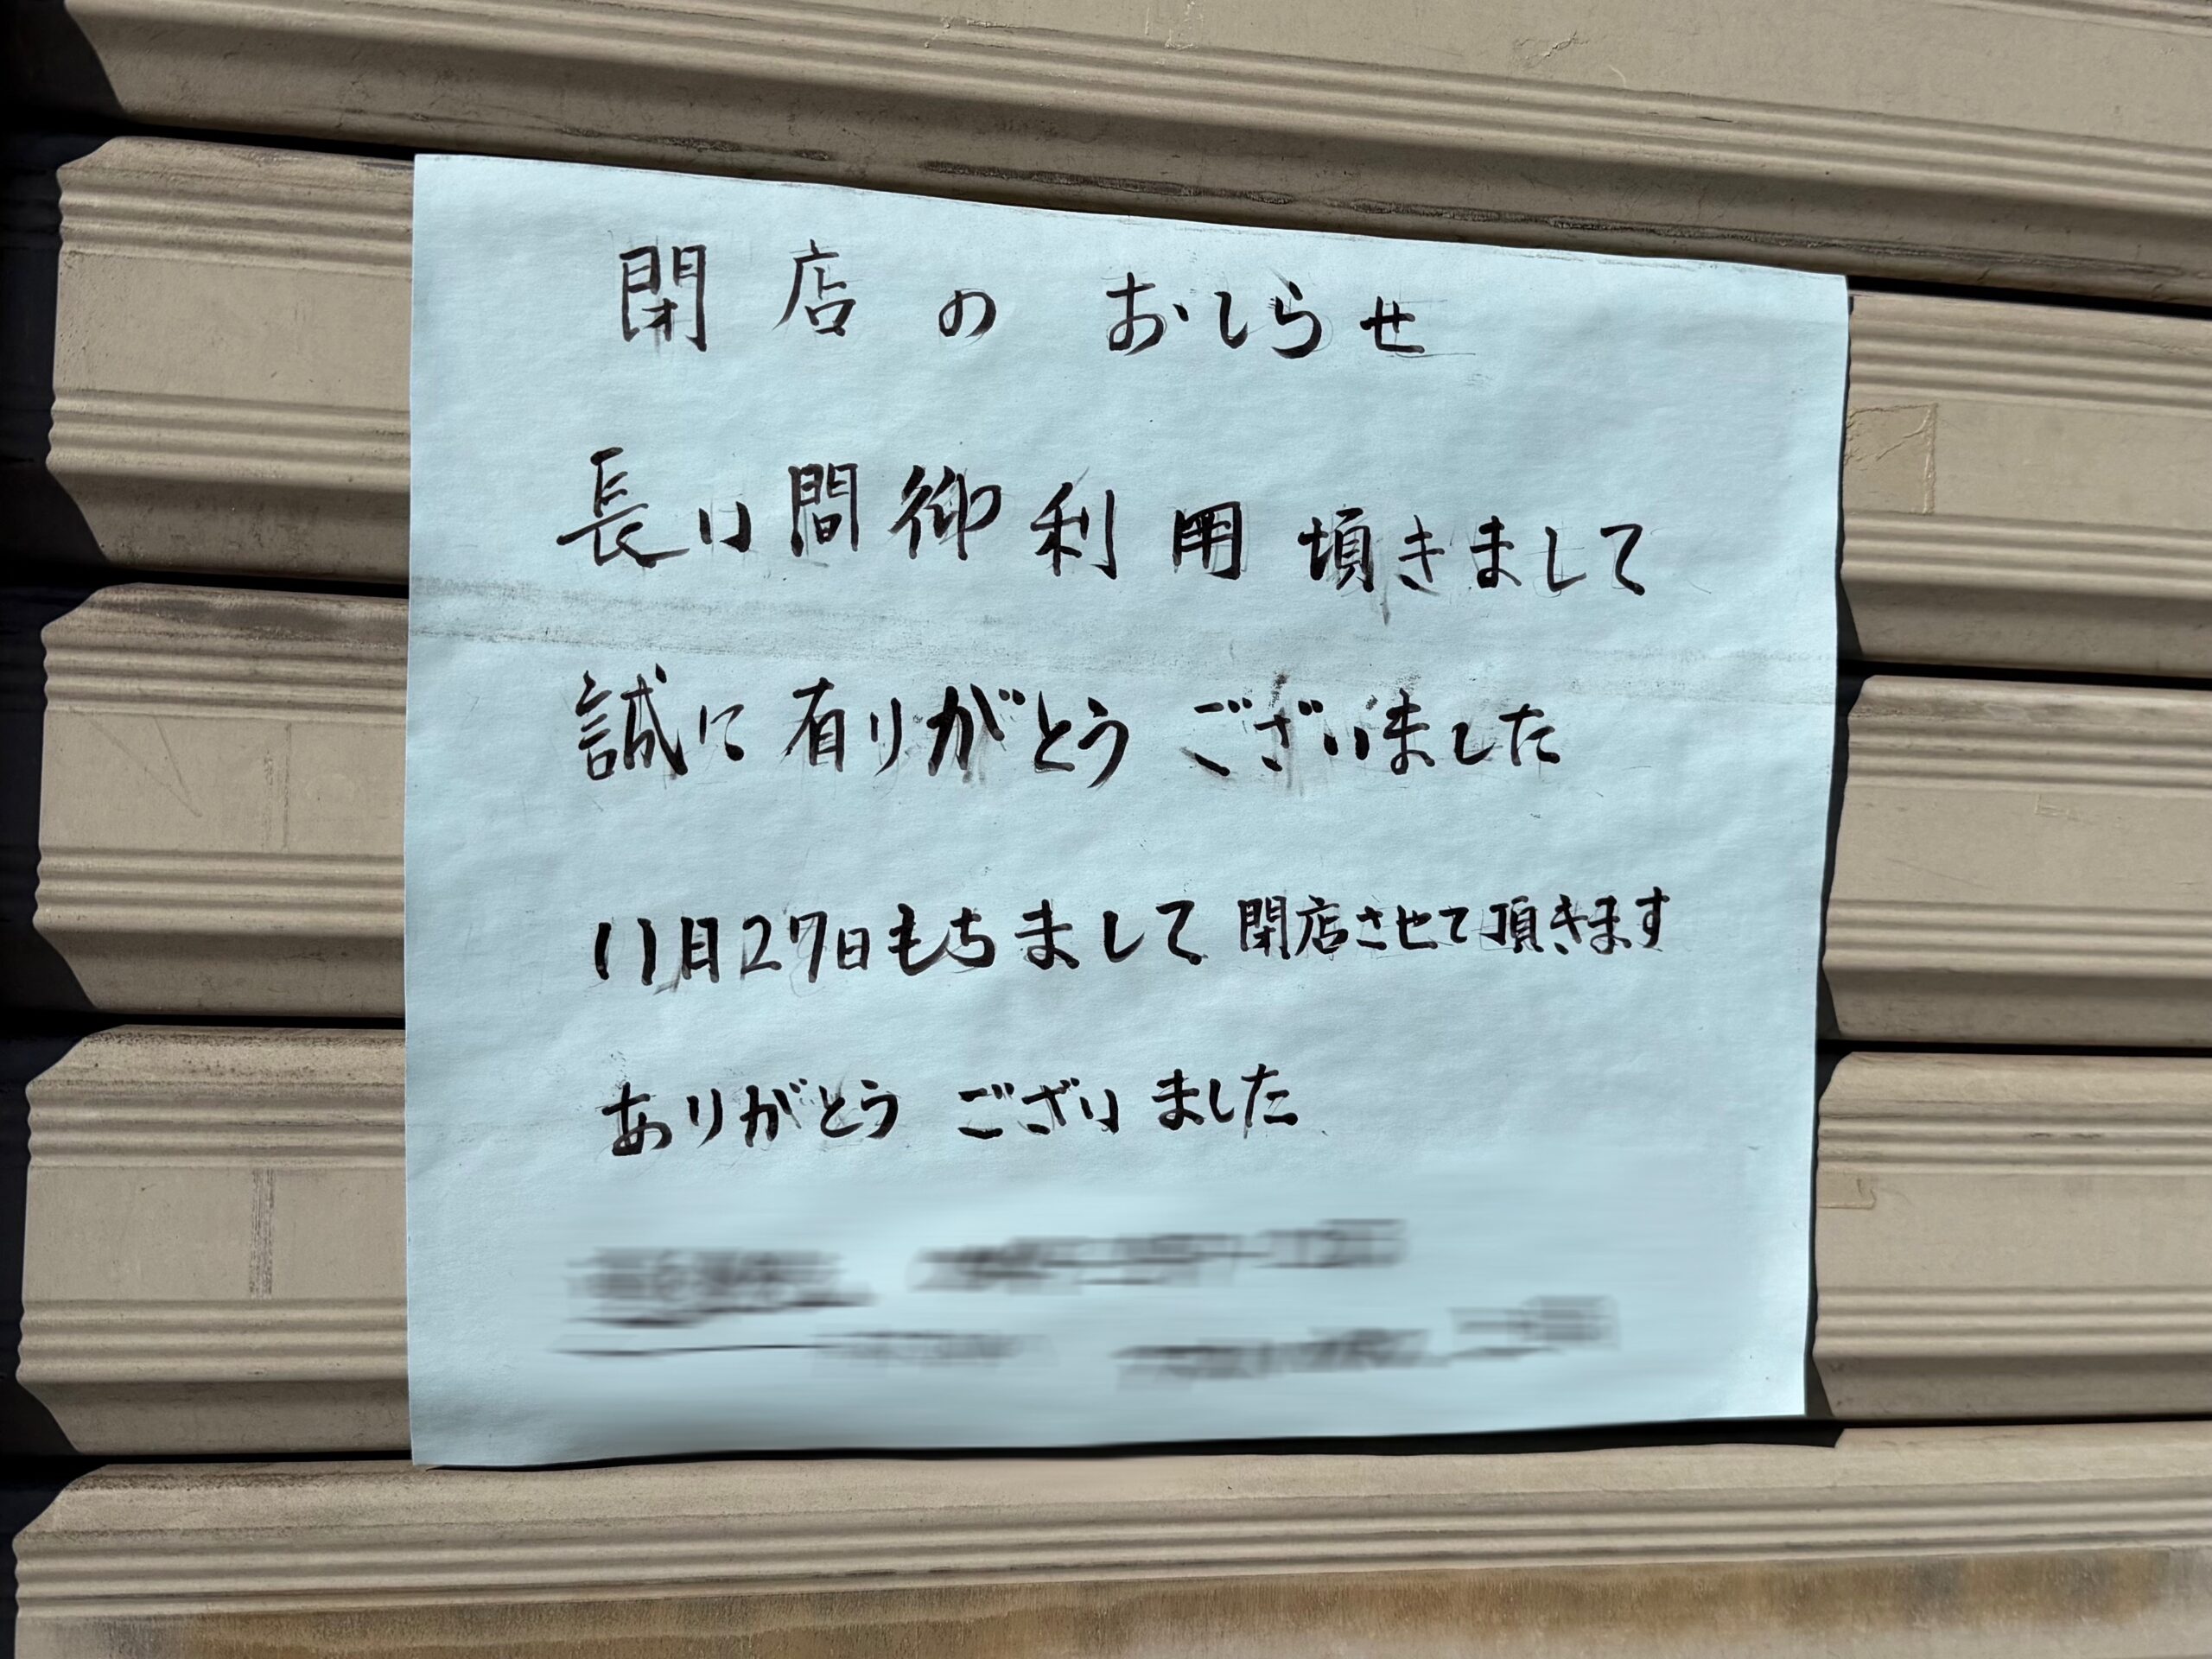 閉店の おしらせ
長い間御利用頂きまして
誠に有りがとう ございました
11月27日もちまして閉店させて頂きます
ありがとう ございました